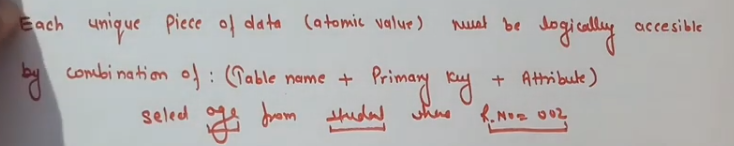 Each unique piece of data (atomic value) must be logically accesible
by combination of : (Table name + Primary key + Attribute)
select age from student where R.No = 002